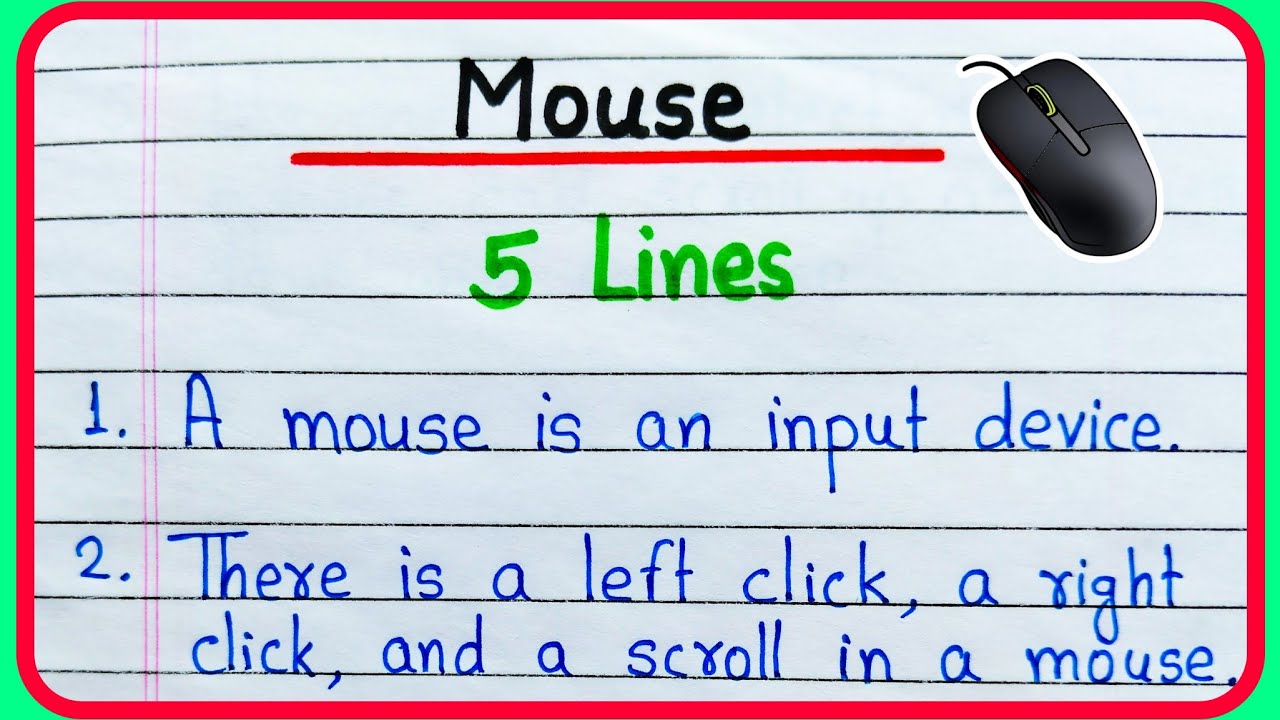 Mouse
5 Lines
1. A mouse is an input device.
2. There is a left click, a right
click, and a scroll in a mouse.